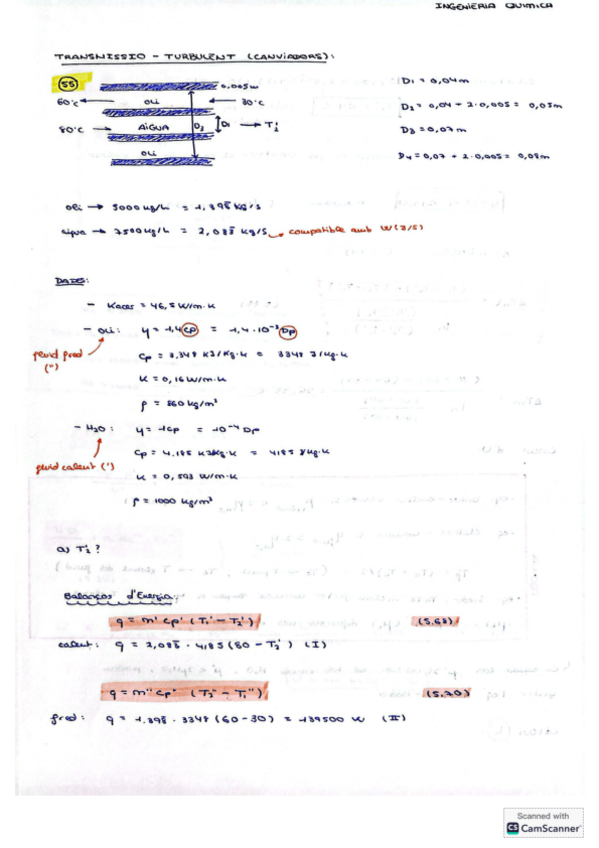 INGENIERIA QUIMICA
TRANSMISSIO - TURBULENT (CANVIADORS):
55
0,005m
60°C OLI 30°C
80°C AIGUA D3 D1 T2'
OLI
D1 = 0,04m
D2 = 0,04 + 2·0,005 = 0,05m
D3 = 0,07m
D4 = 0,07 + 2·0,005 = 0,08m
oli → 5000 kg/h = 1,398 kg/s
aigua → 7500 kg/h = 2,083 kg/s compatible amb W (J/s)
DADES:
- Kacer = 46,5 W/m·K
- OLI: μ = 1,4 cp = 1,4·10⁻³ Dp
fluid fred (")
Cp = 3,348 KJ/kg·K = 3348 J/kg·K
K = 0,16 W/m·K
ρ = 860 kg/m³
- H2O: μ = 1cp = 10⁻⁴ Dp
fluid calent (')
Cp = 4.185 KJ/kg·K = 4185 J/kg·K
K = 0,593 W/m·K
ρ = 1000 kg/m³
a) T2' ?
Balanços d'Energia:
q = m' cp' (T1' - T2') (5.68)
calent: q = 2,083 · 4185 (80 - T2') (I)
q = m'' cp'' (T2'' - T1'') (5.70)
fred: q = 1.398 · 3348 (60-30) = 139500 W (II)
Scanned with
CS CamScanner